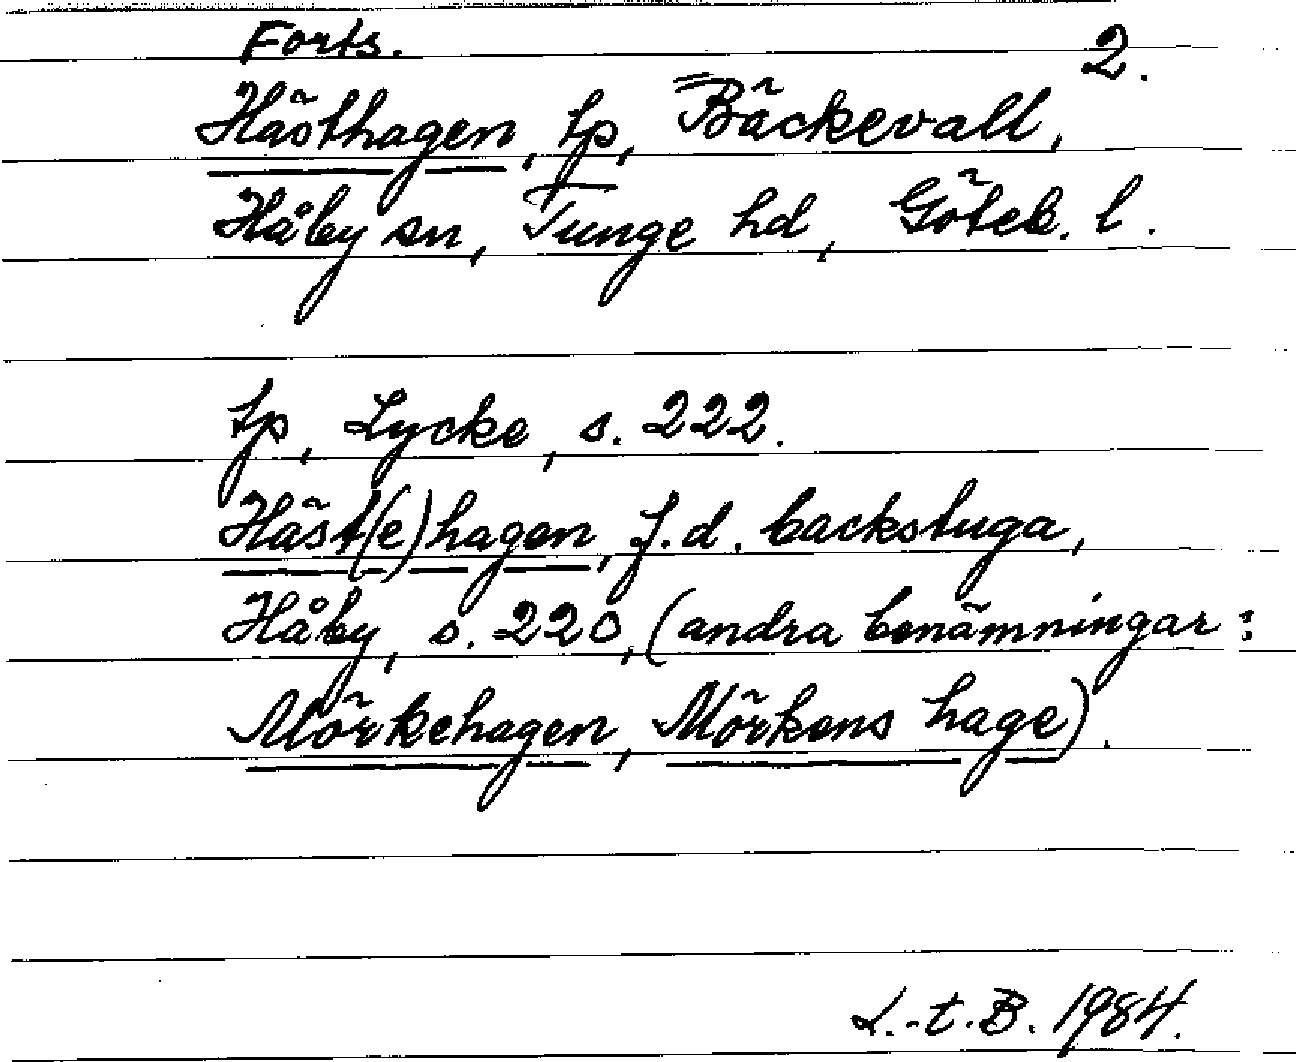 Forts. 2.
Hästhagen, tp, Bäckevall,
Håby sn, Tunge hd, Göteb. l.
tp, Lycke, s. 222.
Häst(e)hagen, f.d. backstuga,
Håby, s. 220, (andra benämningar:
Mörkehagen, Mörkens hage).
L.-t.B. 1984.